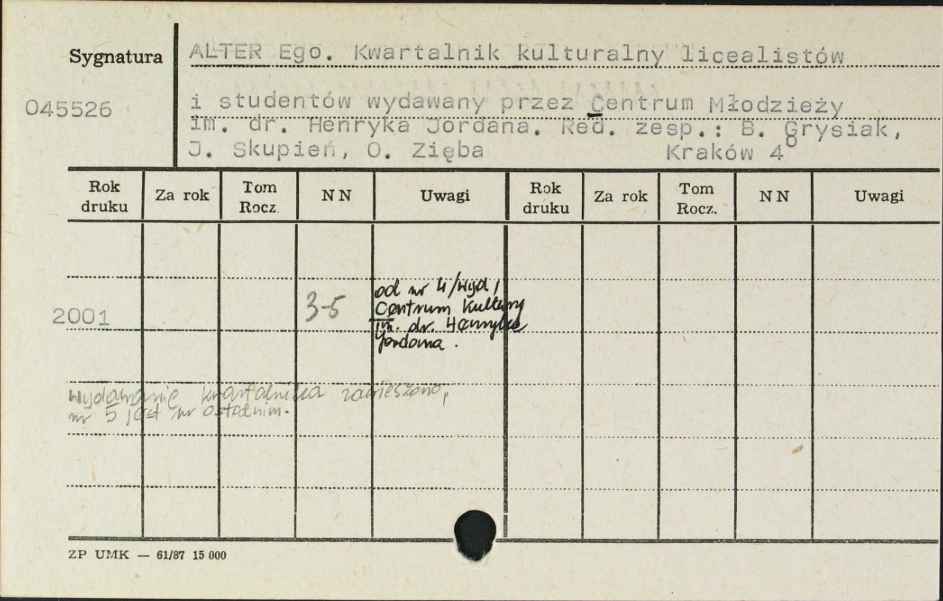 Sygnatura
ALTER Ego. Kwartalnik kulturalny licealistów
045526
i studentów wydawany przez Centrum Młodzieży
im. dr. Henryka Jordana. Red. zesp.: B. Grysiak,
J. Skupień, O. Zięba Kraków 4°
Rok druku Za rok Tom Rocz. NN Uwagi Rok druku Za rok Tom Rocz. NN Uwagi
2001 3-5
od nr 4/wyd/
Centrum Kultury
im. dr. Henryka
Jordana.
Wydawanie kwartalnika zawieszono,
nr 5 jest nr ostatnim.
ZP UMK — 61/87 15 000